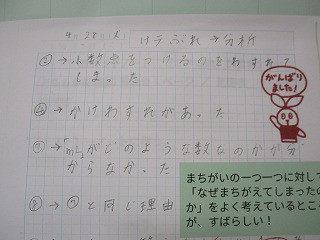 4. 28. 火 けテぶれ→分析
→小数点をつけるのをわすれて
しま。た
→かけわすれがあ。た
→「mL」がどのような数なのかが分
からなか。た
→⑦と同じ理由
がんばり
ました!
まちがいの一つ一つに対して
「なぜまちがえてしまったの
か」をよく考えているところ
が、すばらしい!